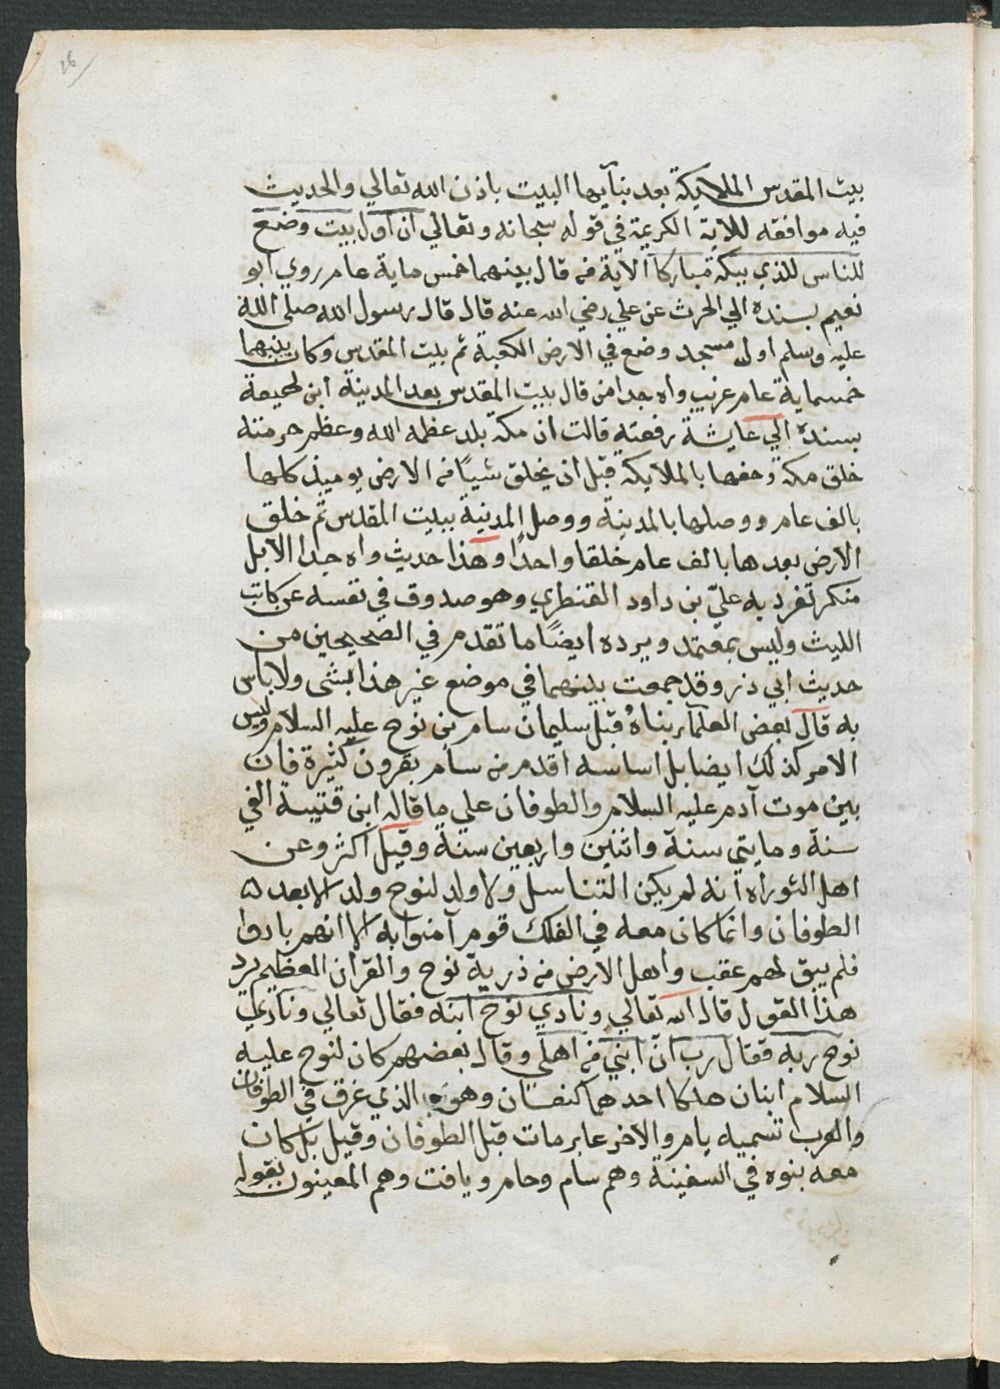 بيت المقدس الملايكة بعد بنآيها البيت باذن الله تعالي والحديث
فيه موافقه للاية الكريمة في قوله سبحانه وتعالي ان اول بيت وضع
للناس للذي ببكة مباركا الاية فم قال بينهما خمس ماية عام روي ابو
نعيم بسنده الي الحرث عن علي رضي الله عنه قال قال رسول الله صلي الله
عليه وسلم اول مسجد وضع في الارض الكعبة ثم بيت المقدس وكان بينهما
خمسماية عام غريب واه جدا من قال بيت المقدس بعد المدينة ابن لهيعة
بسنده الي عايشة رفعته قالت ان مكة بلد عظمه الله وعظم حرمته
خلق مكة وحفها بالملايكة قبل ان يخلق شيًا من الارض يوميذ كلها
بالف عام ووصلها بالمدينة ووصل المدينة ببيت المقدس ثم خلق
الارض بعدها بالف عام خلقا واحدًا وهذا حديث واه جدا الا بل
منكر تفرد به عليّ بن داود القنطري وهو صدوق في نفسه عن كاتب
الليث وليس بمعتمد ويرده ايضًا ما تقدم في الصحيحين من
حديث ابي ذر وقد جمعت بينهما في موضع غير هذا بشي ولا باس
به قال بعض العلمآء بناهُ قبل سليمان سام بن نوح عليه السلام وليس
الامر كذلك ايضا بل اساسه اقدم من سام بقرون كثيرة فان
بين موت آدم عليه السلام والطوفان علي ما قاله ابن قتيبة الفي
سنة ومايتي سنة واثنين واربعين سنة وقيل اكثر وعن
اهل التوراه انه لم يكن التناسل ولا ولد لنوح ولد الا بعد
الطوفان وانما كان معه في الفلك قوم آمنوا به الا انهم بادوا
فلم يبق لهم عقب واهل الارض من ذرية نوح والقران العظيم يرد
هذا القول قال الله تعالي ونادي نوح ابنه فقال تعالي ونادي
نوح ربه فقال رب انّ ابني من اهلي وقال بعضهم كان لنوح عليه
السلام ابنان هلكا احدهما كنعان وهو الذي غرق في الطوفان
والعرب تسميه يام والاخر عابر مات قبل الطوفان وقيل بل كان
معه بنوه في السفينة وهم سام وحام ويافت وهم المعينون بقوله